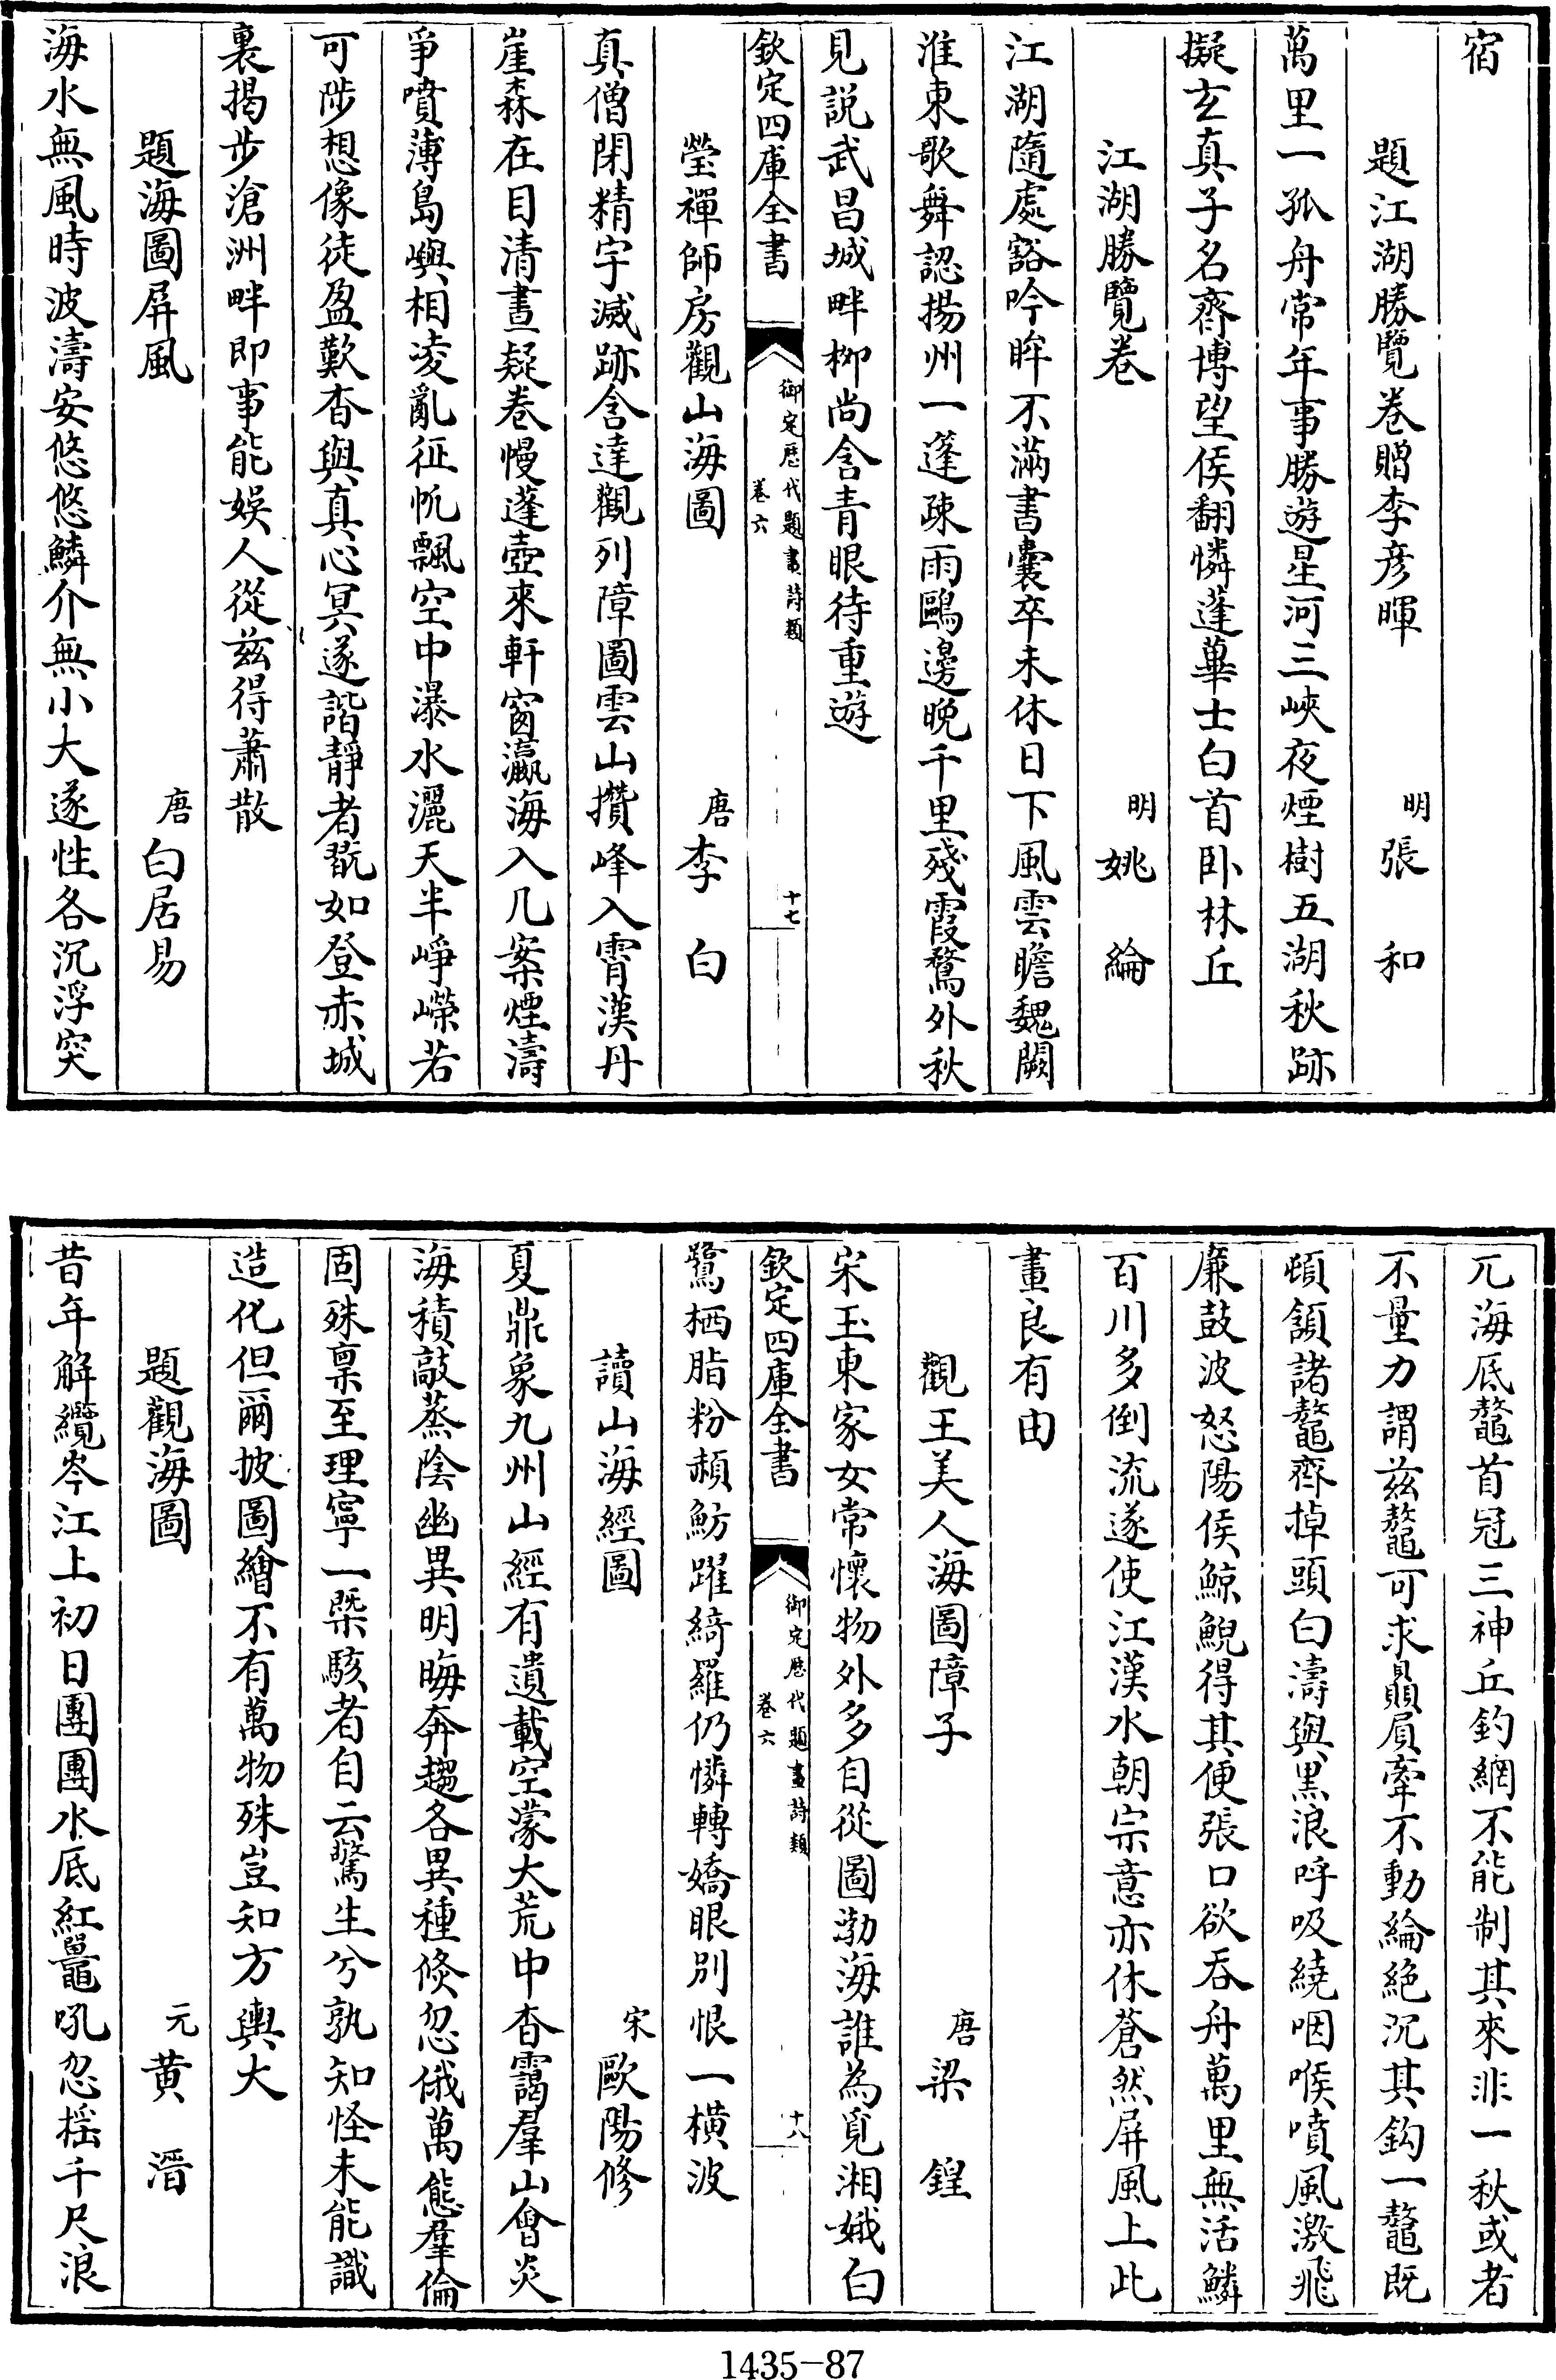 宿
題江湖勝覽卷贈李彦暉　明張和
萬里一孤舟常年事勝遊星河三峽夜煙樹五湖秋跡
擬玄真子名齊博望侯翻憐蓬蓽士白首卧林丘
江湖勝覽卷　明姚綸
江湖隨處豁吟眸不滿書囊卒未休日下風雲瞻魏闕
淮東歌舞認揚州一蓬疎雨鷗邊晚千里殘霞鶩外秋
見説武昌城畔柳尚含青眼待重遊
欽定四庫全書　御定歴代題畫詩類　卷六　十七
瑩禪師房觀山海圖　唐李白
真僧閉精宇滅跡含達觀列障圖雲山攢峰入霄漢丹
崖森在目清晝疑卷幔蓬壺來軒窗瀛海入几案煙濤
爭噴薄島嶼相凌亂征帆飄空中瀑水灑天半崢嶸若
可陟想像徒盈歎杳與真心冥遂諧靜者翫如登赤城
裏揭步滄洲畔即事能娱人從兹得蕭散
題海圖屏風　唐白居易
海水無風時波濤安悠悠鱗介無小大遂性各沉浮突
兀海底鼇首冠三神丘釣網不能制其來非一秋或者
不量力謂兹鼇可求贔屓牽不動綸絶沉其鈎一鼇既
頓頷諸鼇齊掉頭白濤與黑浪呼吸繞咽喉噴風激飛
廉鼓波怒陽侯鯨鯢得其便張口欲吞舟萬里無活鱗
百川多倒流遂使江漢水朝宗意亦休蒼然屏風上此
畫良有由
觀王美人海圖障子　唐梁鍠
宋玉東家女常懷物外多自從圖渤海誰為覓湘娥白
欽定四庫全書　御定歴代題畫詩類　卷六　十八
鷺栖脂粉赬魴躍綺羅仍憐轉嬌眼别恨一横波
讀山海經圖　宋歐陽修
夏鼎象九州山經有遺載空濛大荒中杳靄羣山會炎
海積敲蒸陰幽異明晦奔趨各異種倏忽俄萬態羣倫
固殊稟至理寧一槩駭者自云驚生兮孰知怪未能識
造化但爾披圖繪不有萬物殊豈知方輿大
題觀海圖　元黄溍
昔年解纜岑江上初日團團水底紅鼉吼忽摇千尺浪
1435-87